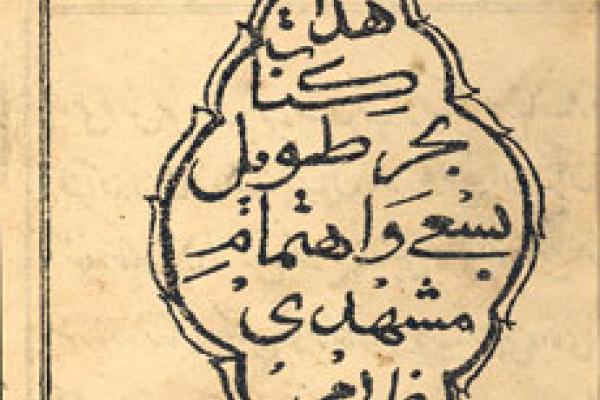 هذا
كتاب
بحر طويل
بسعی و اهتمام
مشهدی